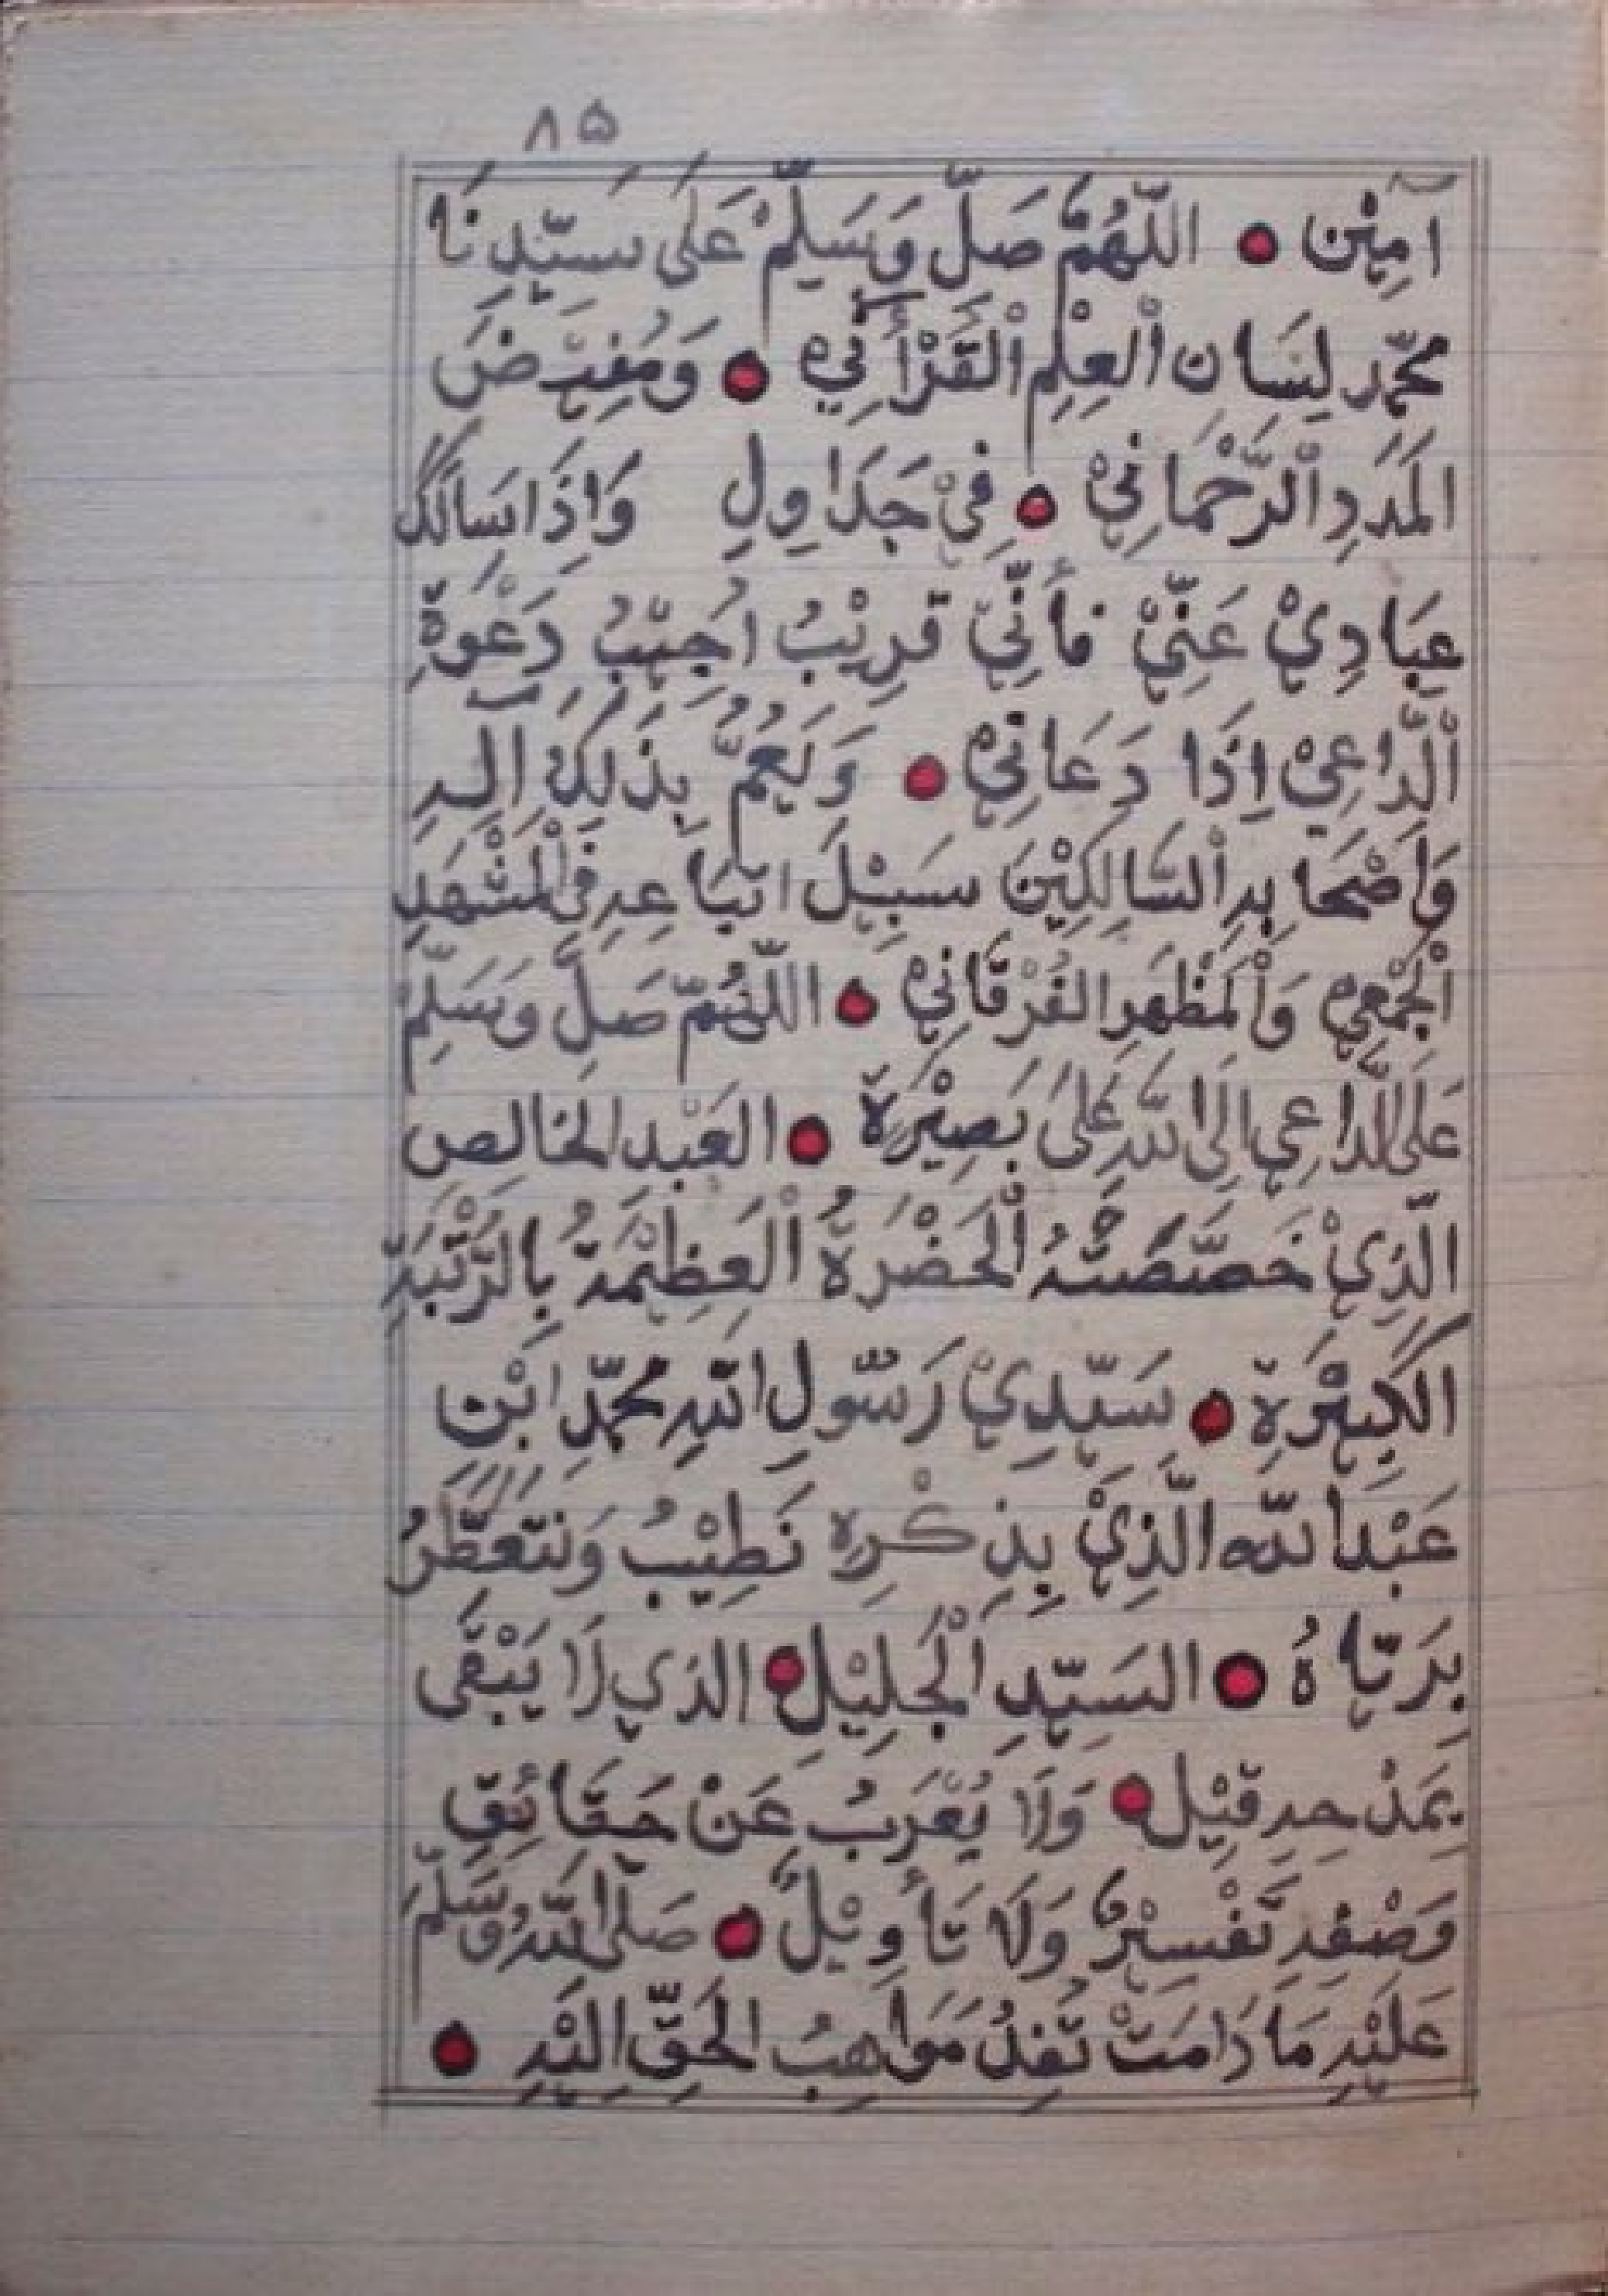 ٨٥
آمِيْن • اللّهُمَّ صَلِّ وَسَلِّمْ عَلَى سَيّدِنَا
محمّد لِسَان الْعِلْمِ الْقُرْأَنِي • وَمُفِيْضَ
المَدَدِ الْرَّحْمَانِيْ • فِيْ جَدَاوِلِ وَاِذَا سَالَكَ
عِبَادِيْ عَنِّيْ فَأنِّيْ قَرِيْبُ اُجِيْبُ دَعْوَةَ
اْلدّاعِيْ اِذَا دَعَانِيْ • وَلَعُمَّ بِذَلِكَ آلِهِ
وَاَصْحَابِهِ اْلسَّالِكِيْنَ سَبِيْلَ اتّبَاعِهِ فِي اْلمَشْهَدِ
اْلجَمْعِي وَاْلمَظْهَرِ الفُرْقَانِيْ • اللّهُمّ صَلِّ وَسَلِّمْ
عَلَى الدّاعِي اِلَى اللهِ عَلَى بَصِيْرَة • العَبْدِ الخالِصِ
الّذِيْ خَصَّصَتْهُ اْلحَضْرَةُ اْلعَظِيْمَةُ بِالرُّتْبَةِ
الكَبِيْرَةِ • سَيّدِيْ رَسُّولِ اللهِ محمّدِ ابْنِ
عَبْدِ الله الّذِيْ بِذِكْرِهِ نَطِيْبُ وَنَتَعَطَّرُ
بِرَيّاهُ • السَيّدِ اْلجَلِيْلِ • الذي لَا يَبْقَى
بِمَدْحِهِ قِيْل • وَلَا يُعْرَبُ عَنْ حَقَائِقِ
وَصْفِهِ تَفْسِيْرٌ وَلَا تَأوِيْلٌ • صَلَّى اللهُ وَسَلَّمَ
عَلَيْهِ مَا دَامَتْ تَفِدُ مَوَاهِبُ الحَقِّ اِلَيْهِ •